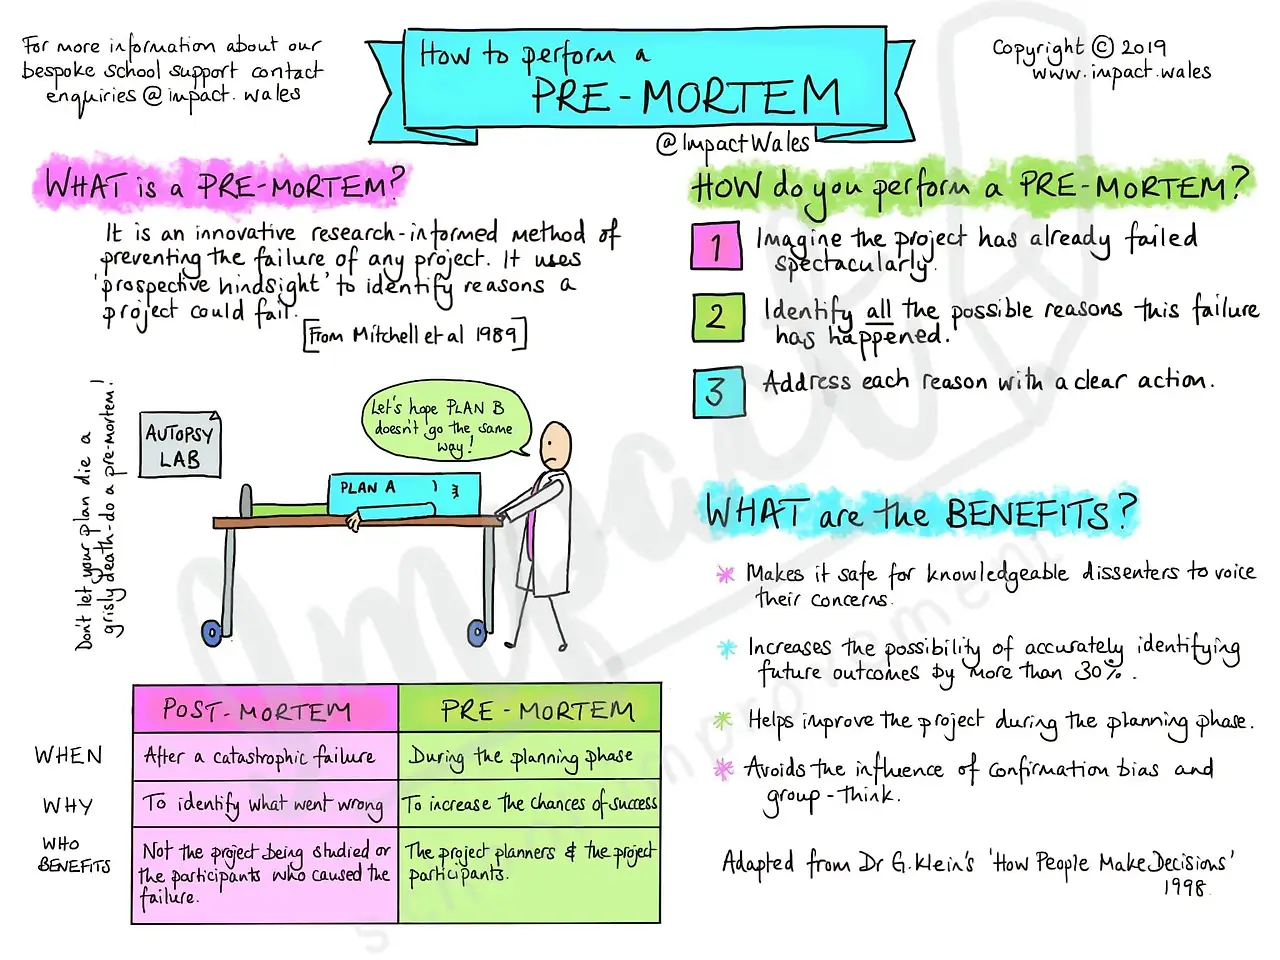 For more information about our
bespoke school support contact
enquiries @ impact.wales
How to perform a
PRE-MORTEM
@ImpactWales
Copyright © 2019
www.impact.wales
WHAT is a PRE-MORTEM?
It is an innovative research-informed method of
preventing the failure of any project. It uses
'prospective hindsight' to identify reasons a
project could fail.
[From Mitchell et al 1989]
Don't let your plan die a
grisly death - do a pre-mortem!
AUTOPSY
LAB
Let's hope PLAN B
doesn't go the same
way!
PLAN A
POST-MORTEM
PRE-MORTEM
WHEN
After a catastrophic failure
During the planning phase
WHY
To identify what went wrong
To increase the chances of success
WHO
BENEFITS
Not the project being studied or
the participants who caused the
failure.
The project planners & the project
participants.
HOW do you perform a PRE-MORTEM?
1
Imagine the project has already failed
spectacularly.
2
Identify all the possible reasons this failure
has happened.
3
Address each reason with a clear action.
WHAT are the BENEFITS?
Makes it safe for knowledgeable dissenters to voice
their concerns.
Increases the possibility of accurately identifying
future outcomes by more than 30%.
Helps improve the project during the planning phase.
Avoids the influence of confirmation bias and
group-think.
Adapted from Dr G.Klein's 'How People Make Decisions'
1998.
Impact
school improvement